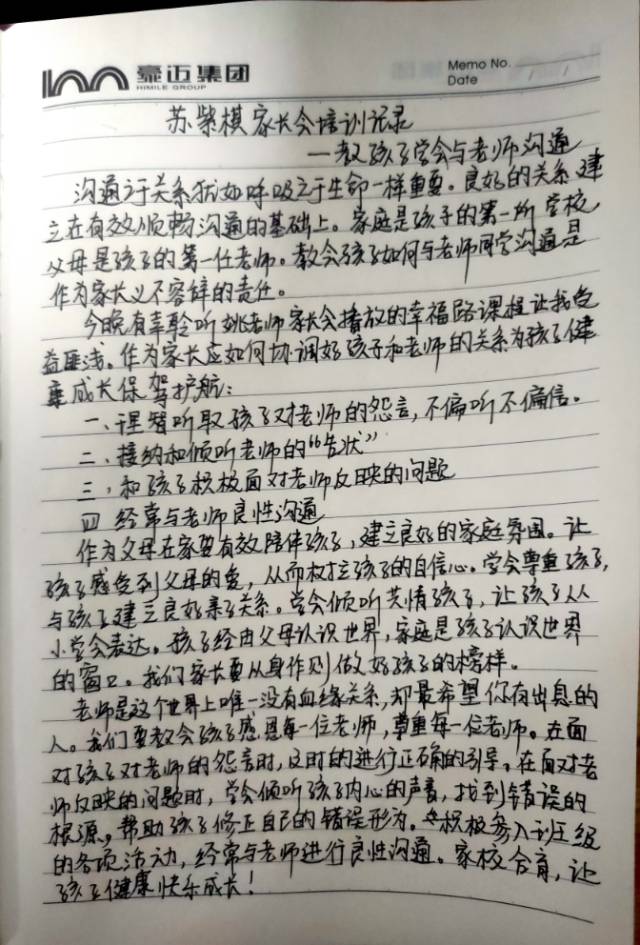 豪迈集团
HIMILE GROUP
Memo No.
Date / /
苏紫棋家长会培训记录
—教孩子学会与老师沟通
沟通于关系犹如呼吸之于生命一样重要。良好的关系建
立在有效顺畅沟通的基础上。家庭是孩子的第一所学校,
父母是孩子的第一任老师。教会孩子如何与老师同学沟通是
作为家长义不容辞的责任。
今晚有幸聆听姚老师家长会播放的幸福路课程让我受
益匪浅。作为家长应如何协调好孩子和老师的关系为孩子健
康成长保驾护航:
一、理智听取孩子对老师的怨言,不偏听不偏信。
二、接纳和倾听老师的“告状”
三、和孩子积极面对老师反映的问题
四 经常与老师良性沟通
作为父母在家要有效陪伴孩子,建立良好的家庭氛围。让
孩子感受到父母的爱,从而树立孩子的自信心。学会尊重孩子,
与孩子建立良好亲子关系。学会倾听共情孩子,让孩子从
小学会表达。孩子经由父母认识世界,家庭是孩子认识世界
的窗口。我们家长要从身作则做好孩子的榜样。
老师是这个世界上唯一没有血缘关系,却最希望你有出息的
人。我们要教会孩子感恩每一位老师,尊重每一位老师。在面
对孩子对老师的怨言时,及时的进行正确的引导。在面对老
师反映的问题时,学会倾听孩子内心的声音,找到错误的
根源。帮助孩子修正自己的错误形为。积极参入班级
的各项活动,经常与老师进行良性沟通。家校合育,让
孩子健康快乐成长!